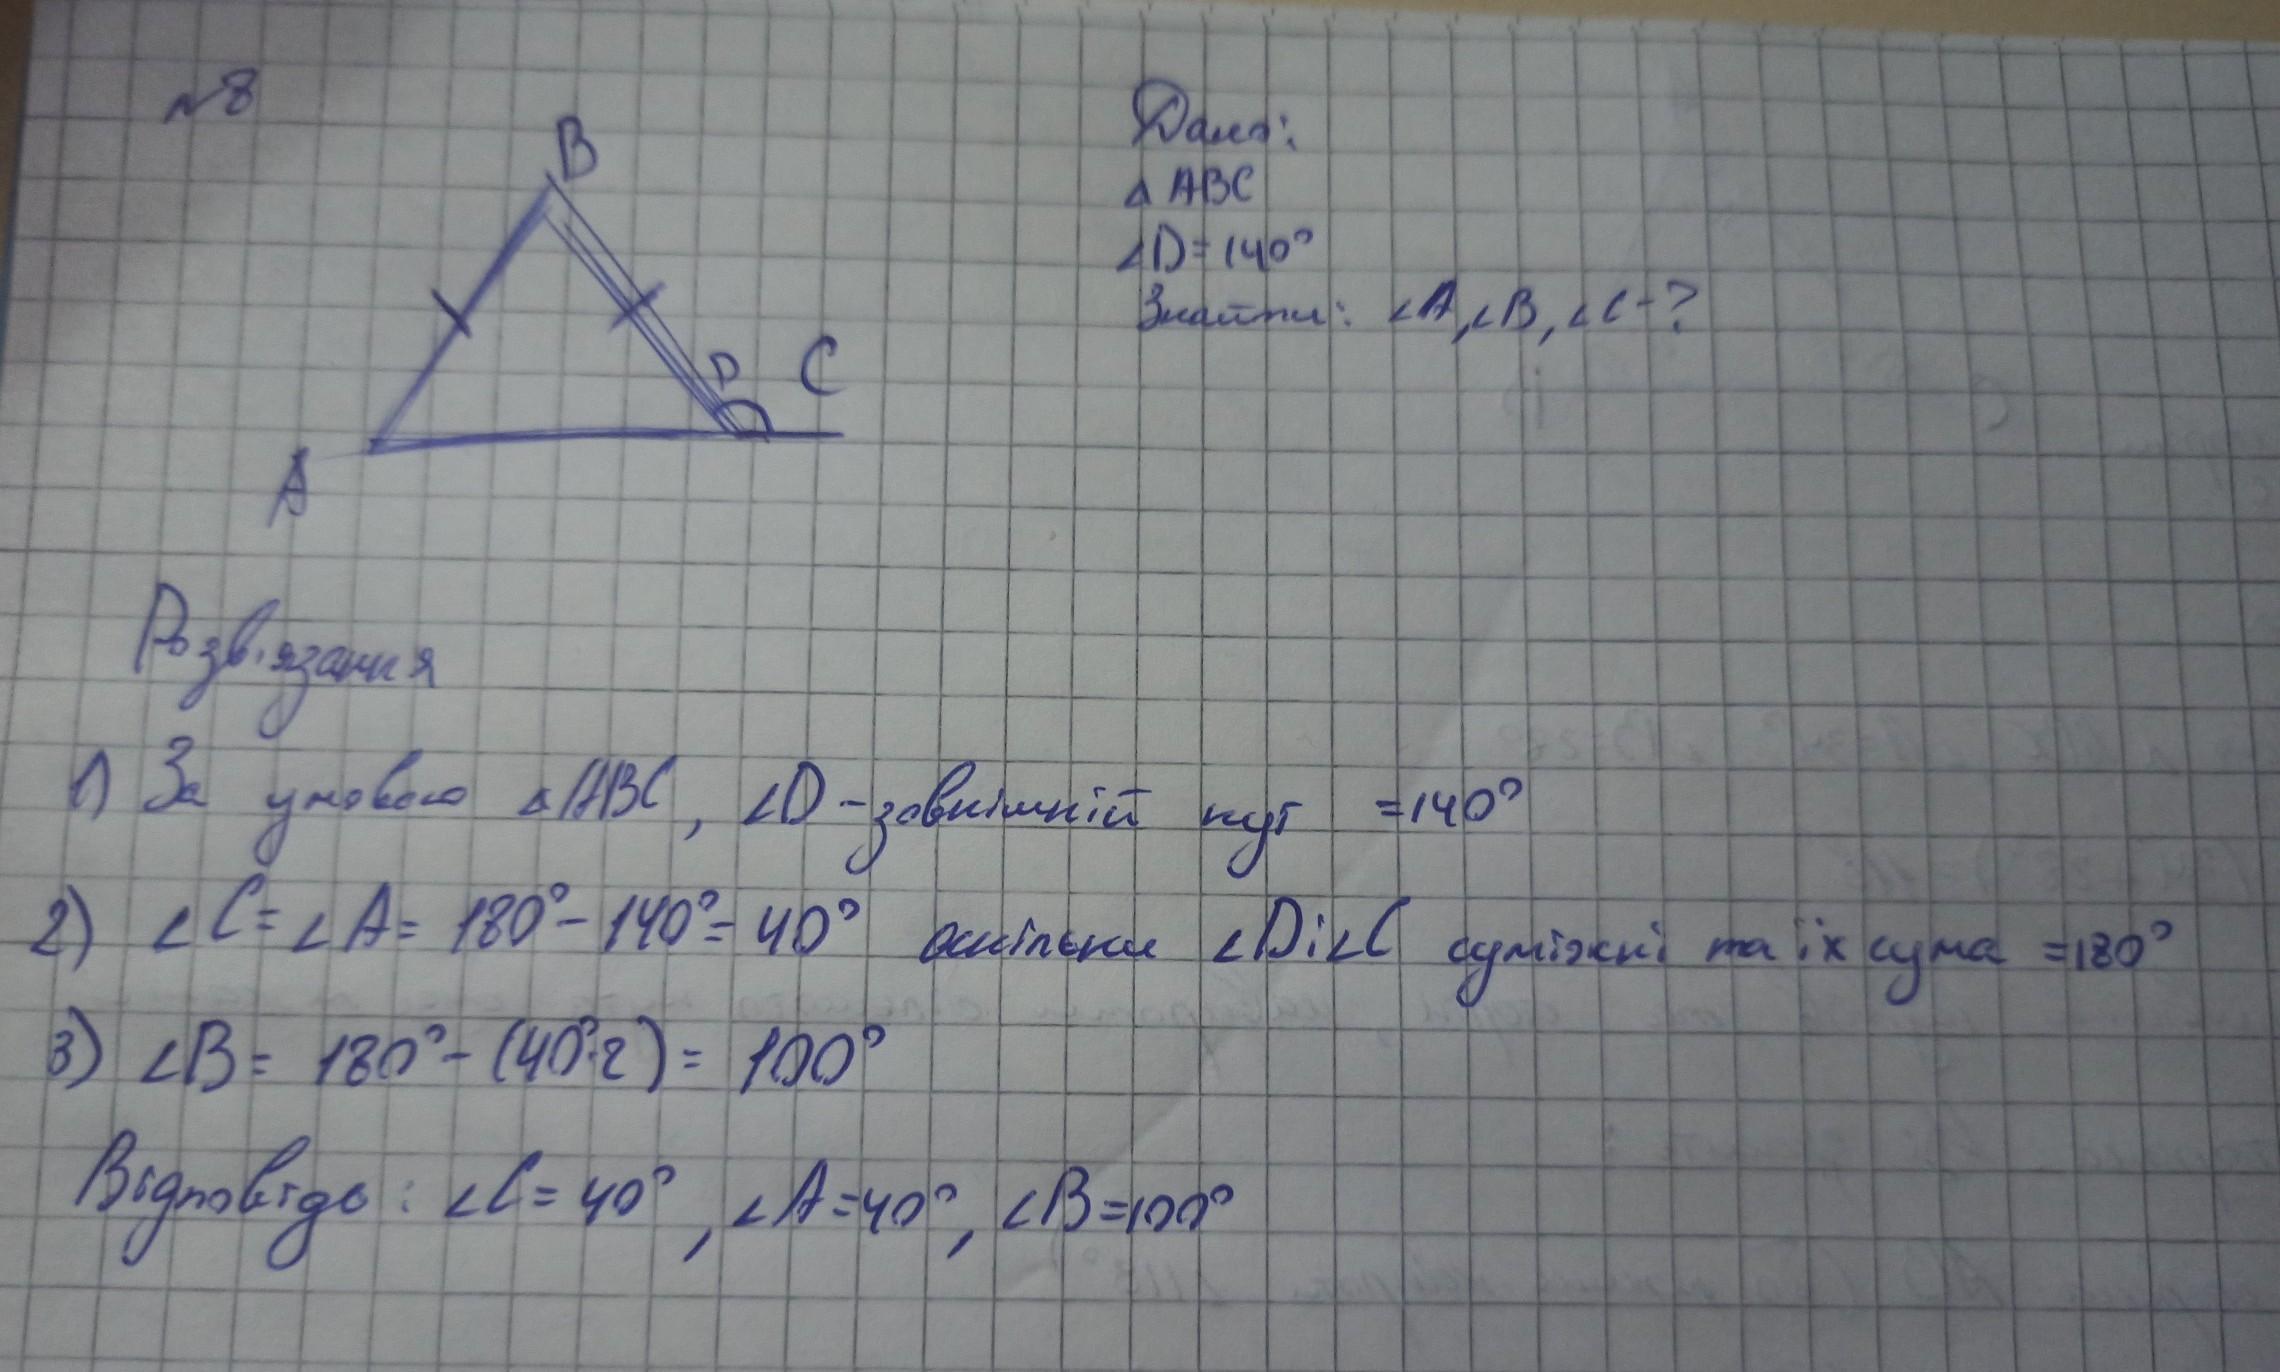 №8
B
D
C
A
Дано:
△ ABC
∠D=140°
Знайти: ∠A,∠B,∠C-?
Розв'язання
1) За умовою △ABC, ∠D-зовнішній кут =140°
2) ∠C=∠A= 180°-140°= 40° оскільки ∠D і ∠C суміжні та їх сума =180°
3) ∠B= 180°- (40°·2)= 100°
Відповідь: ∠C= 40°, ∠A=40°, ∠B=100°